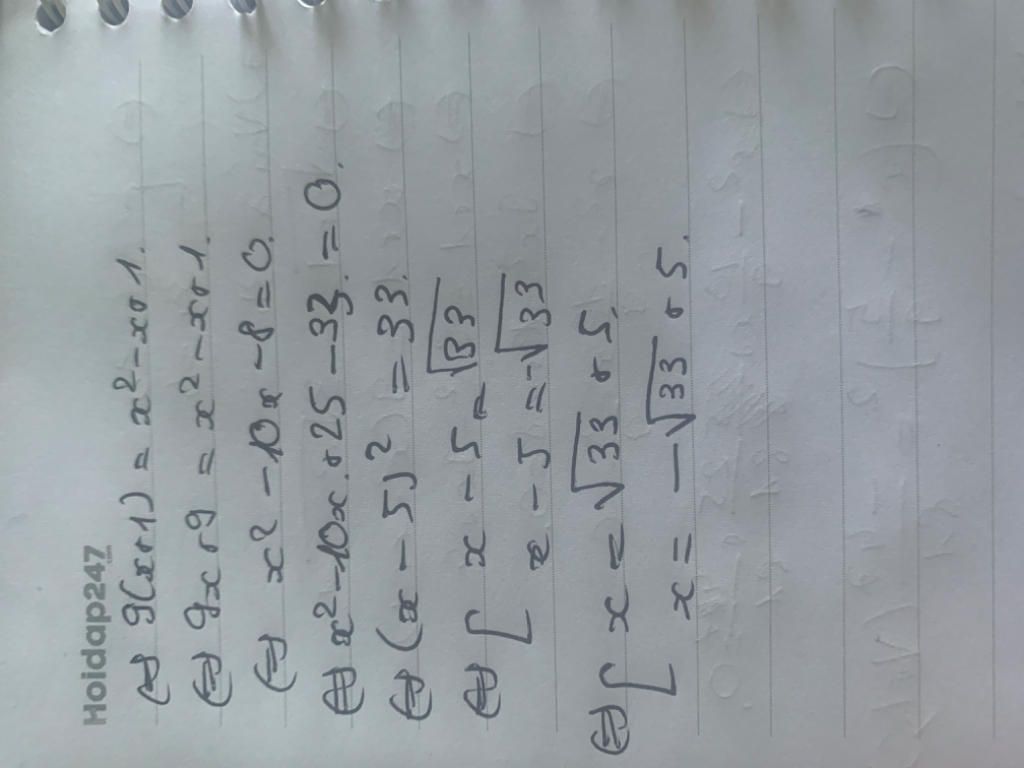 Hoidap247
⇔ 9(x+1) = x² - x + 1.
⇔ 9x + 9 = x² - x + 1.
⇔ x² - 10x - 8 = 0.
⇔ x² - 10x + 25 - 33 = 0.
⇔ (x - 5)² = 33.
⇔ [ x - 5 = √33
x - 5 = -√33
⇔ [ x = √33 + 5.
x = -√33 + 5.